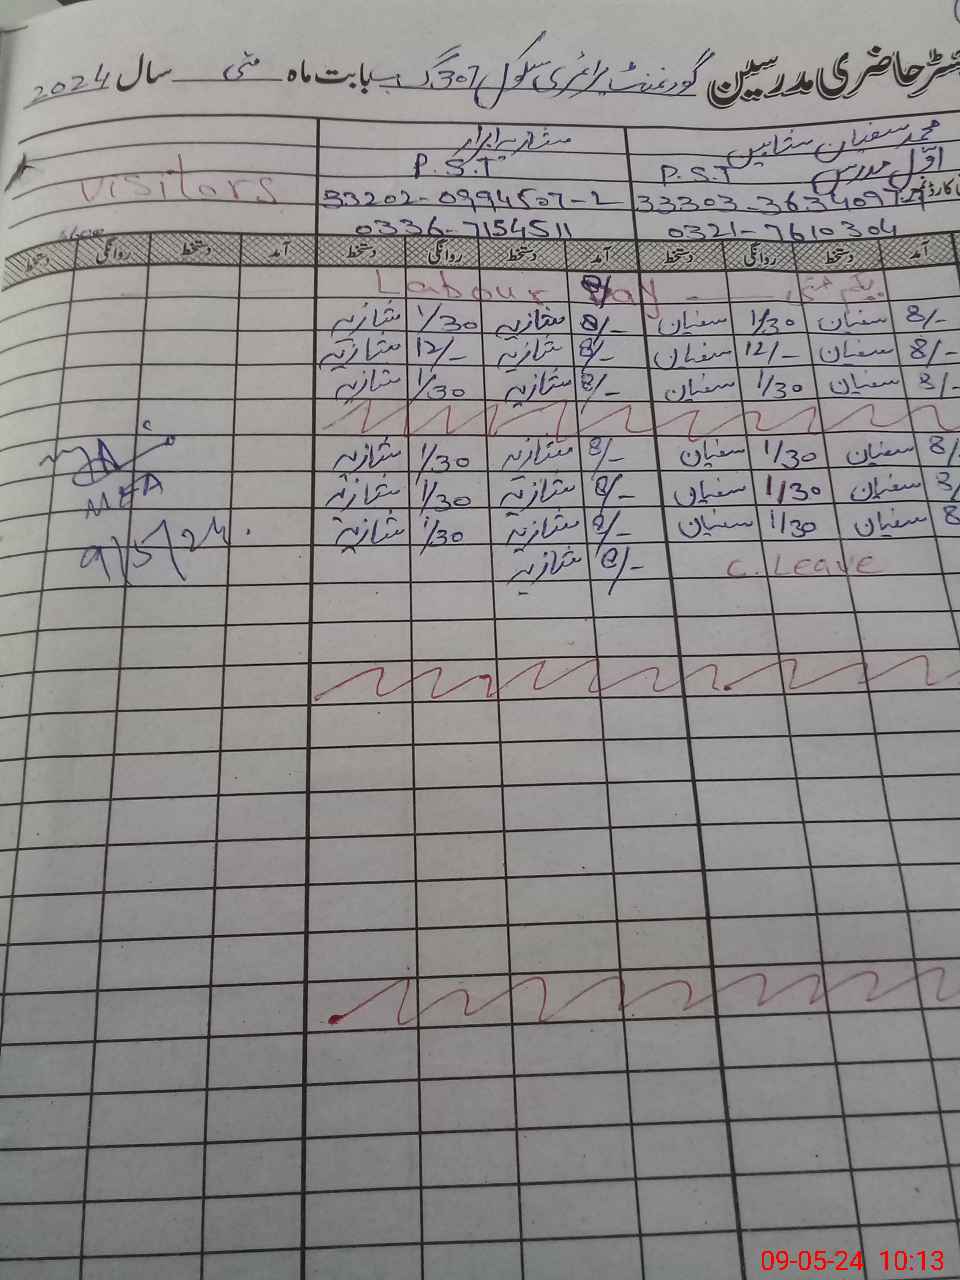 رجسٹر حاضری مدرسین گورنمنٹ پرائمری سکول 307 گ ب بابت ماہ مئی سال 2024
محمد سفیان شاہین
شازیہ ابرار
اوّل مدرس P.S.T
P.S.T
Visitors
33202-0994507-2
0321-7610304
0336-7154511
آمد دستخط روانگی دستخط آمد دستخط روانگی دستخط آمد دستخط روانگی دستخط
یکم مئی Labour Day
8/- سفیان 1/30 سفیان 8/- شازیہ 1/30 شازیہ
8/- سفیان 12/- سفیان 8/- شازیہ 12/- شازیہ
8/- سفیان 1/30 سفیان 8/- شازیہ 1/30 شازیہ
8/- سفیان 1/30 سفیان 8/- شازیہ 1/30 شازیہ
8/- سفیان 1/30 سفیان 8/- شازیہ 1/30 شازیہ
MEA
8/- سفیان 1/30 سفیان 8/- شازیہ 1/30 شازیہ
9/5/24.
C. Leave 8/- شازیہ
09-05-24 10:13